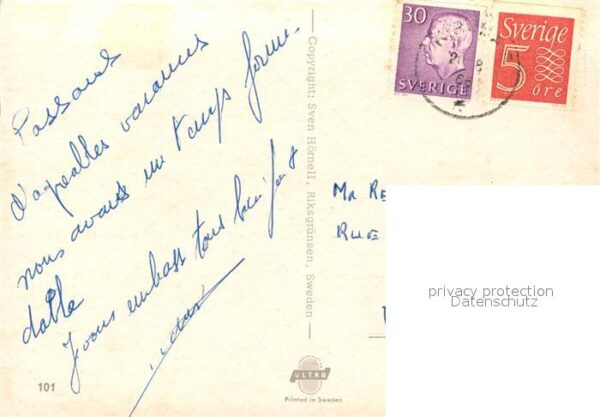 Passons
d'agréables vacances
nous avons un temps formi-
dable
Je vous embrasse tous bien fort
Copyright: Sven Hörnell, Riksgränsen, Sweden
101
ULTRA
Printed in Sweden
30
SVERIGE
Sverige
5
öre
MR RE
RUE
privacy protection
Datenschutz